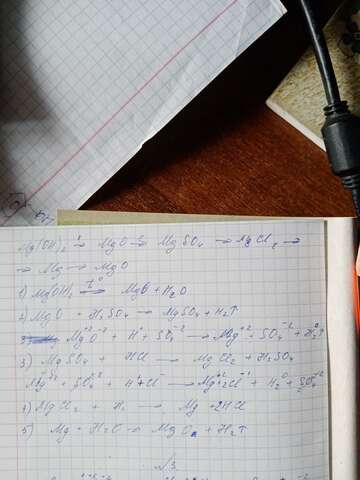 Mg(OH)₂ → MgO → MgSO₄ → MgCl₂ →
→ Mg → MgO
1) Mg(OH)₂ t° → MgO + H₂O
2) MgO + H₂SO₄ → MgSO₄ + H₂↑
Mg⁺²O⁻² + H⁺ + SO₄⁻² → Mg⁺² + SO₄⁻² + H₂⁰↑
3) MgSO₄ + HCl → MgCl₂ + H₂SO₄
Mg⁺² + SO₄⁻² + H⁺Cl⁻ → Mg⁺²2Cl⁻¹ + H₂⁰ + SO₄⁻²
4) MgCl₂ + H₂ → Mg + 2HCl
5) Mg + H₂O → MgO + H₂↑
№3.